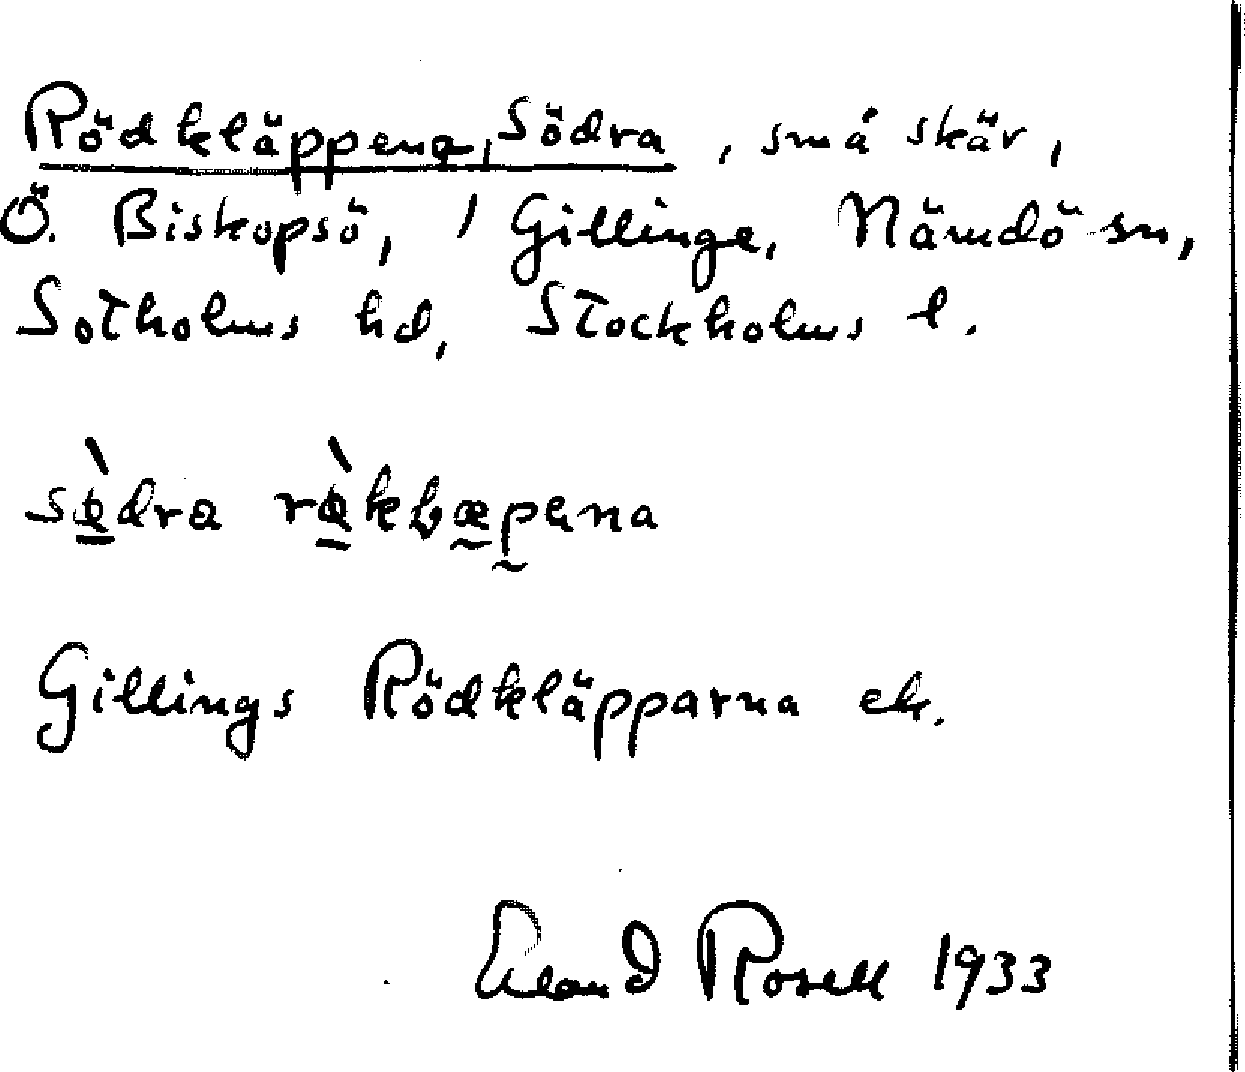 Rödkläppena, Södra, små skär,
Ö. Biskopsö, / Gillinge, Nämdö sn,
Sotholms hd, Stockholms l.
sø̀dra rø̀kłæpena
Gillings Rödkläpparna ek.
Erland Rosell 1933